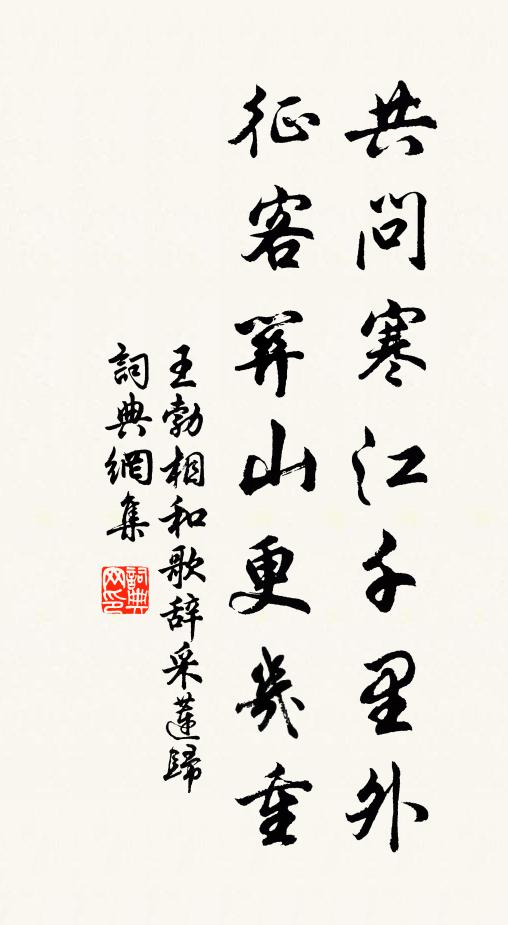 共問寒江千里外
征客關山更幾重
王勃相和歌辞采蓮歸
詞典網集
詞典網印